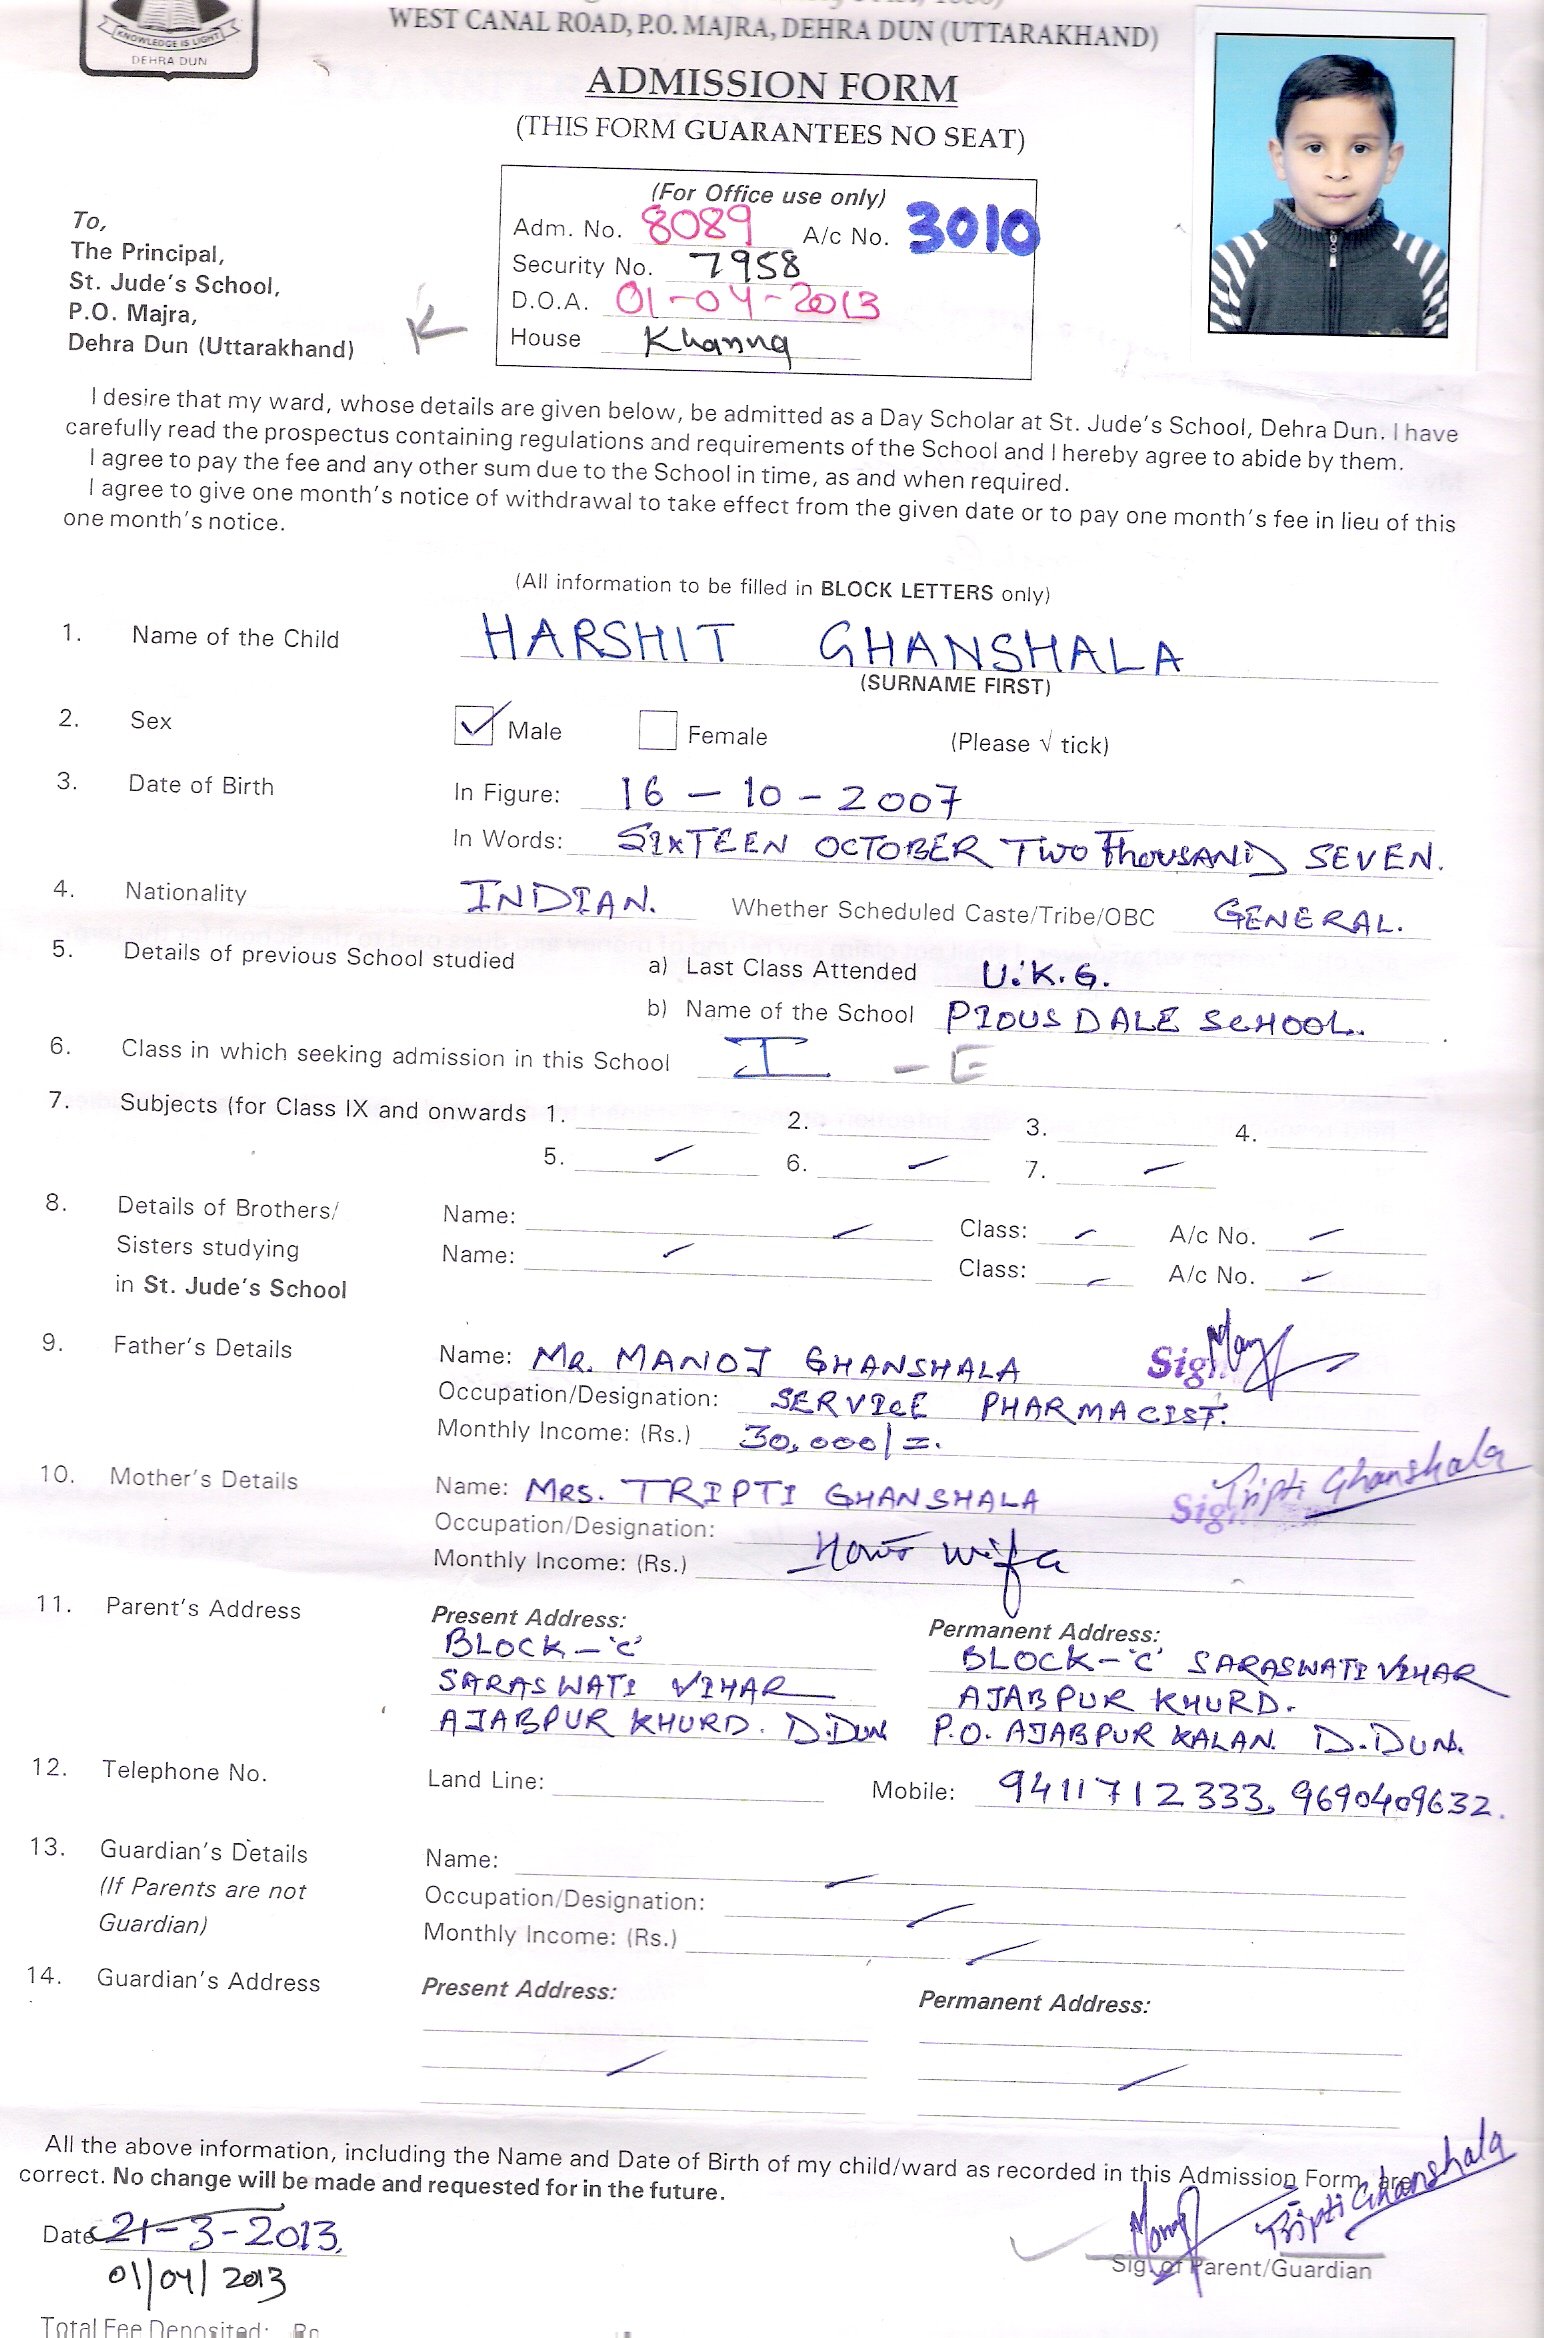 KNOWLEDGE IS LIGHT
DEHRA DUN
WEST CANAL ROAD, P.O. MAJRA, DEHRA DUN (UTTARAKHAND)
ADMISSION FORM
(THIS FORM GUARANTEES NO SEAT)
(For Office use only)
Adm. No. 8089 A/c No. 3010
Security No. 7958
D.O.A. 01-04-2013
House Khanna
To,
The Principal,
St. Jude's School,
P.O. Majra,
Dehra Dun (Uttarakhand)
K
I desire that my ward, whose details are given below, be admitted as a Day Scholar at St. Jude's School, Dehra Dun. I have
carefully read the prospectus containing regulations and requirements of the School and I hereby agree to abide by them.
I agree to pay the fee and any other sum due to the School in time, as and when required.
I agree to give one month's notice of withdrawal to take effect from the given date or to pay one month's fee in lieu of this
one month's notice.
(All information to be filled in BLOCK LETTERS only)
1. Name of the Child HARSHIT GHANSHALA
(SURNAME FIRST)
2. Sex ✓ Male Female (Please √ tick)
3. Date of Birth In Figure: 16 - 10 - 2007
In Words: SIXTEEN OCTOBER TWO THOUSAND SEVEN.
4. Nationality INDIAN. Whether Scheduled Caste/Tribe/OBC GENERAL.
5. Details of previous School studied a) Last Class Attended U.K.G.
b) Name of the School PIOUS DALE SCHOOL.
6. Class in which seeking admission in this School I - E
7. Subjects (for Class IX and onwards 1. 2. 3. 4.
5. 6. 7.
8. Details of Brothers/ Name: Class: A/c No.
Sisters studying Name: Class: A/c No.
in St. Jude's School
9. Father's Details Name: MR. MANOJ GHANSHALA Sig.
Occupation/Designation: SERVICE PHARMACIST.
Monthly Income: (Rs.) 30,000/=.
10. Mother's Details Name: MRS. TRIPTI GHANSHALA Sig. Tripti Ghanshala
Occupation/Designation:
Monthly Income: (Rs.) wife
11. Parent's Address Present Address: Permanent Address:
BLOCK-'C' BLOCK-'C' SARASWATI VIHAR
SARASWATI VIHAR AJABPUR KHURD.
AJABPUR KHURD. D.DUN P.O. AJABPUR KALAN. D.DUN.
12. Telephone No. Land Line: Mobile: 9411712333, 9690409632.
13. Guardian's Details Name:
(If Parents are not Occupation/Designation:
Guardian) Monthly Income: (Rs.)
14. Guardian's Address Present Address: Permanent Address:
All the above information, including the Name and Date of Birth of my child/ward as recorded in this Admission Form, are
correct. No change will be made and requested for in the future.
Date 21-3-2013. Tripti Ghanshala
01/04/2013 Sig. of Parent/Guardian
Total Fee Deposited: Rs